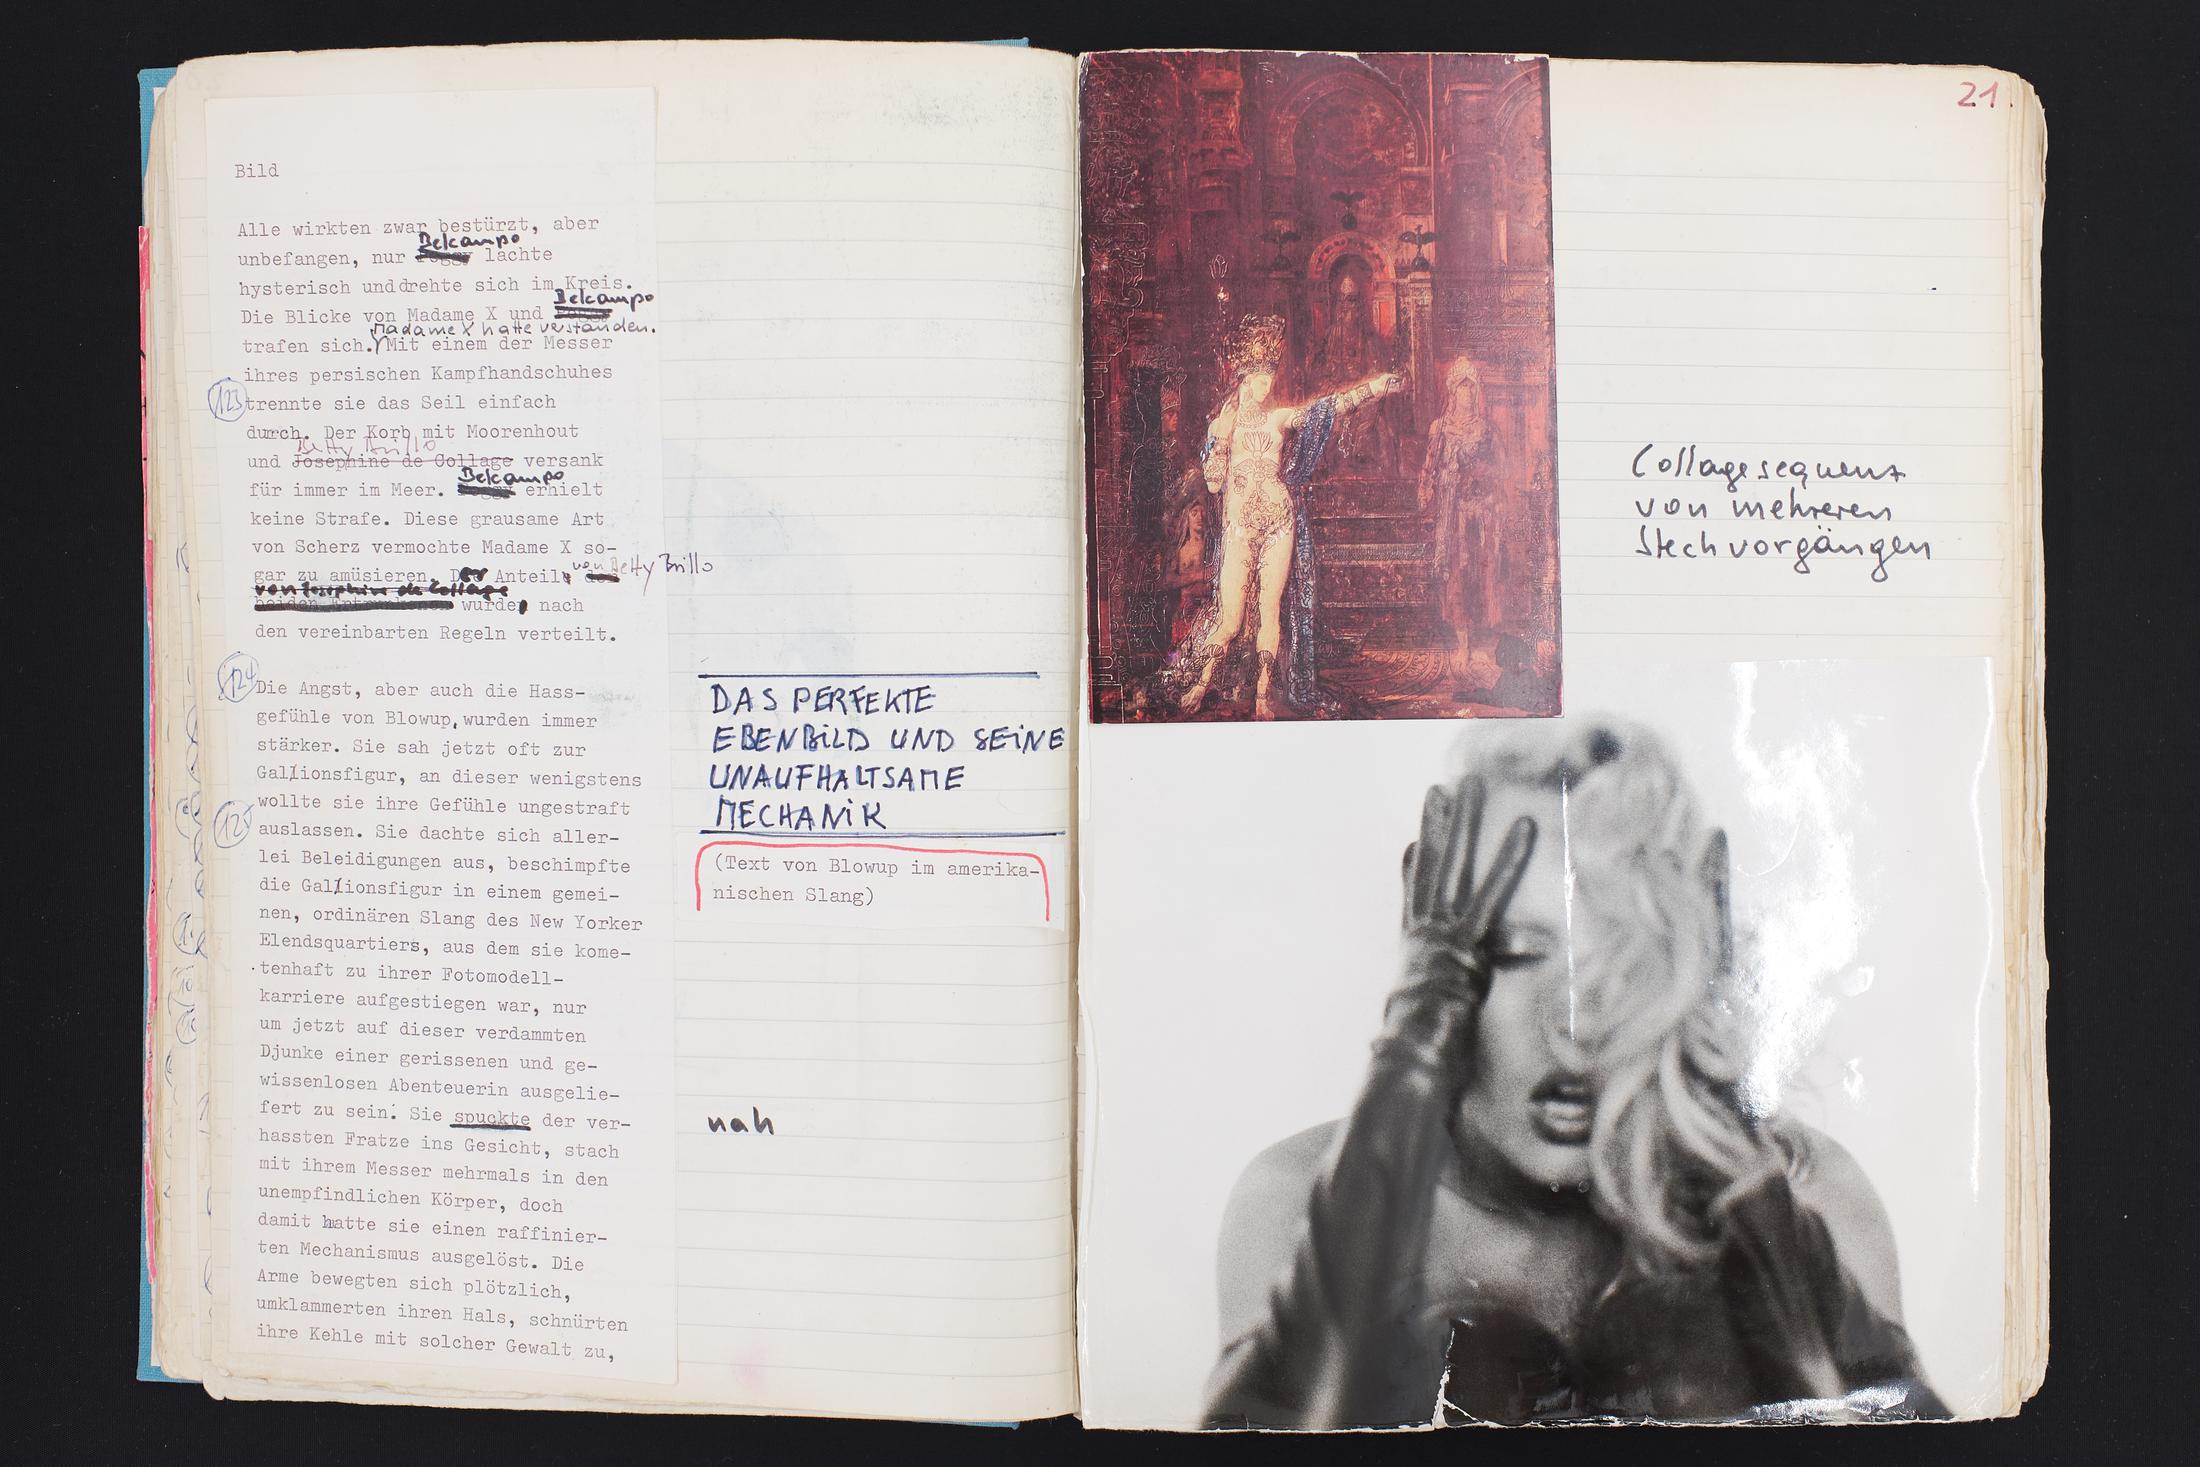 Bild
Alle wirkten zwar bestürzt, aber
Belcampo
unbefangen, nur lachte
hysterisch und drehte sich im Kreis.
Belcampo
Die Blicke von Madame X und
Madame X hatte verstanden.
trafen sich. Mit einem der Messer
ihres persischen Kampfhandschuhes
123 trennte sie das Seil einfach
durch. Der Korb mit Moorenhout
Betty Brillo
und Josephine de Collage versank
Belcampo
für immer im Meer. erhielt
keine Strafe. Diese grausame Art
von Scherz vermochte Madame X so-
von Betty Brillo
gar zu amüsieren. Der Anteil
von Josephine de Collage
wurde nach
den vereinbarten Regeln verteilt.
124 Die Angst, aber auch die Hass-
gefühle von Blowup, wurden immer
stärker. Sie sah jetzt oft zur
Gallionsfigur, an dieser wenigstens
wollte sie ihre Gefühle ungestraft
125 auslassen. Sie dachte sich aller-
lei Beleidigungen aus, beschimpfte
die Gallionsfigur in einem gemei-
nen, ordinären Slang des New Yorker
Elendsquartiers, aus dem sie kome-
tenhaft zu ihrer Fotomodell-
karriere aufgestiegen war, nur
um jetzt auf dieser verdammten
Djunke einer gerissenen und ge-
wissenlosen Abenteuerin ausgelie-
fert zu sein. Sie spuckte der ver-
hassten Fratze ins Gesicht, stach
mit ihrem Messer mehrmals in den
unempfindlichen Körper, doch
damit hatte sie einen raffinier-
ten Mechanismus ausgelöst. Die
Arme bewegten sich plötzlich,
umklammerten ihren Hals, schnürten
ihre Kehle mit solcher Gewalt zu,
DAS PERFEKTE
EBENBILD UND SEINE
UNAUFHALTSAME
MECHANIK
(Text von Blowup im amerika-
nischen Slang)
nah
21.
Collagesequenz
von mehreren
Stechvorgängen